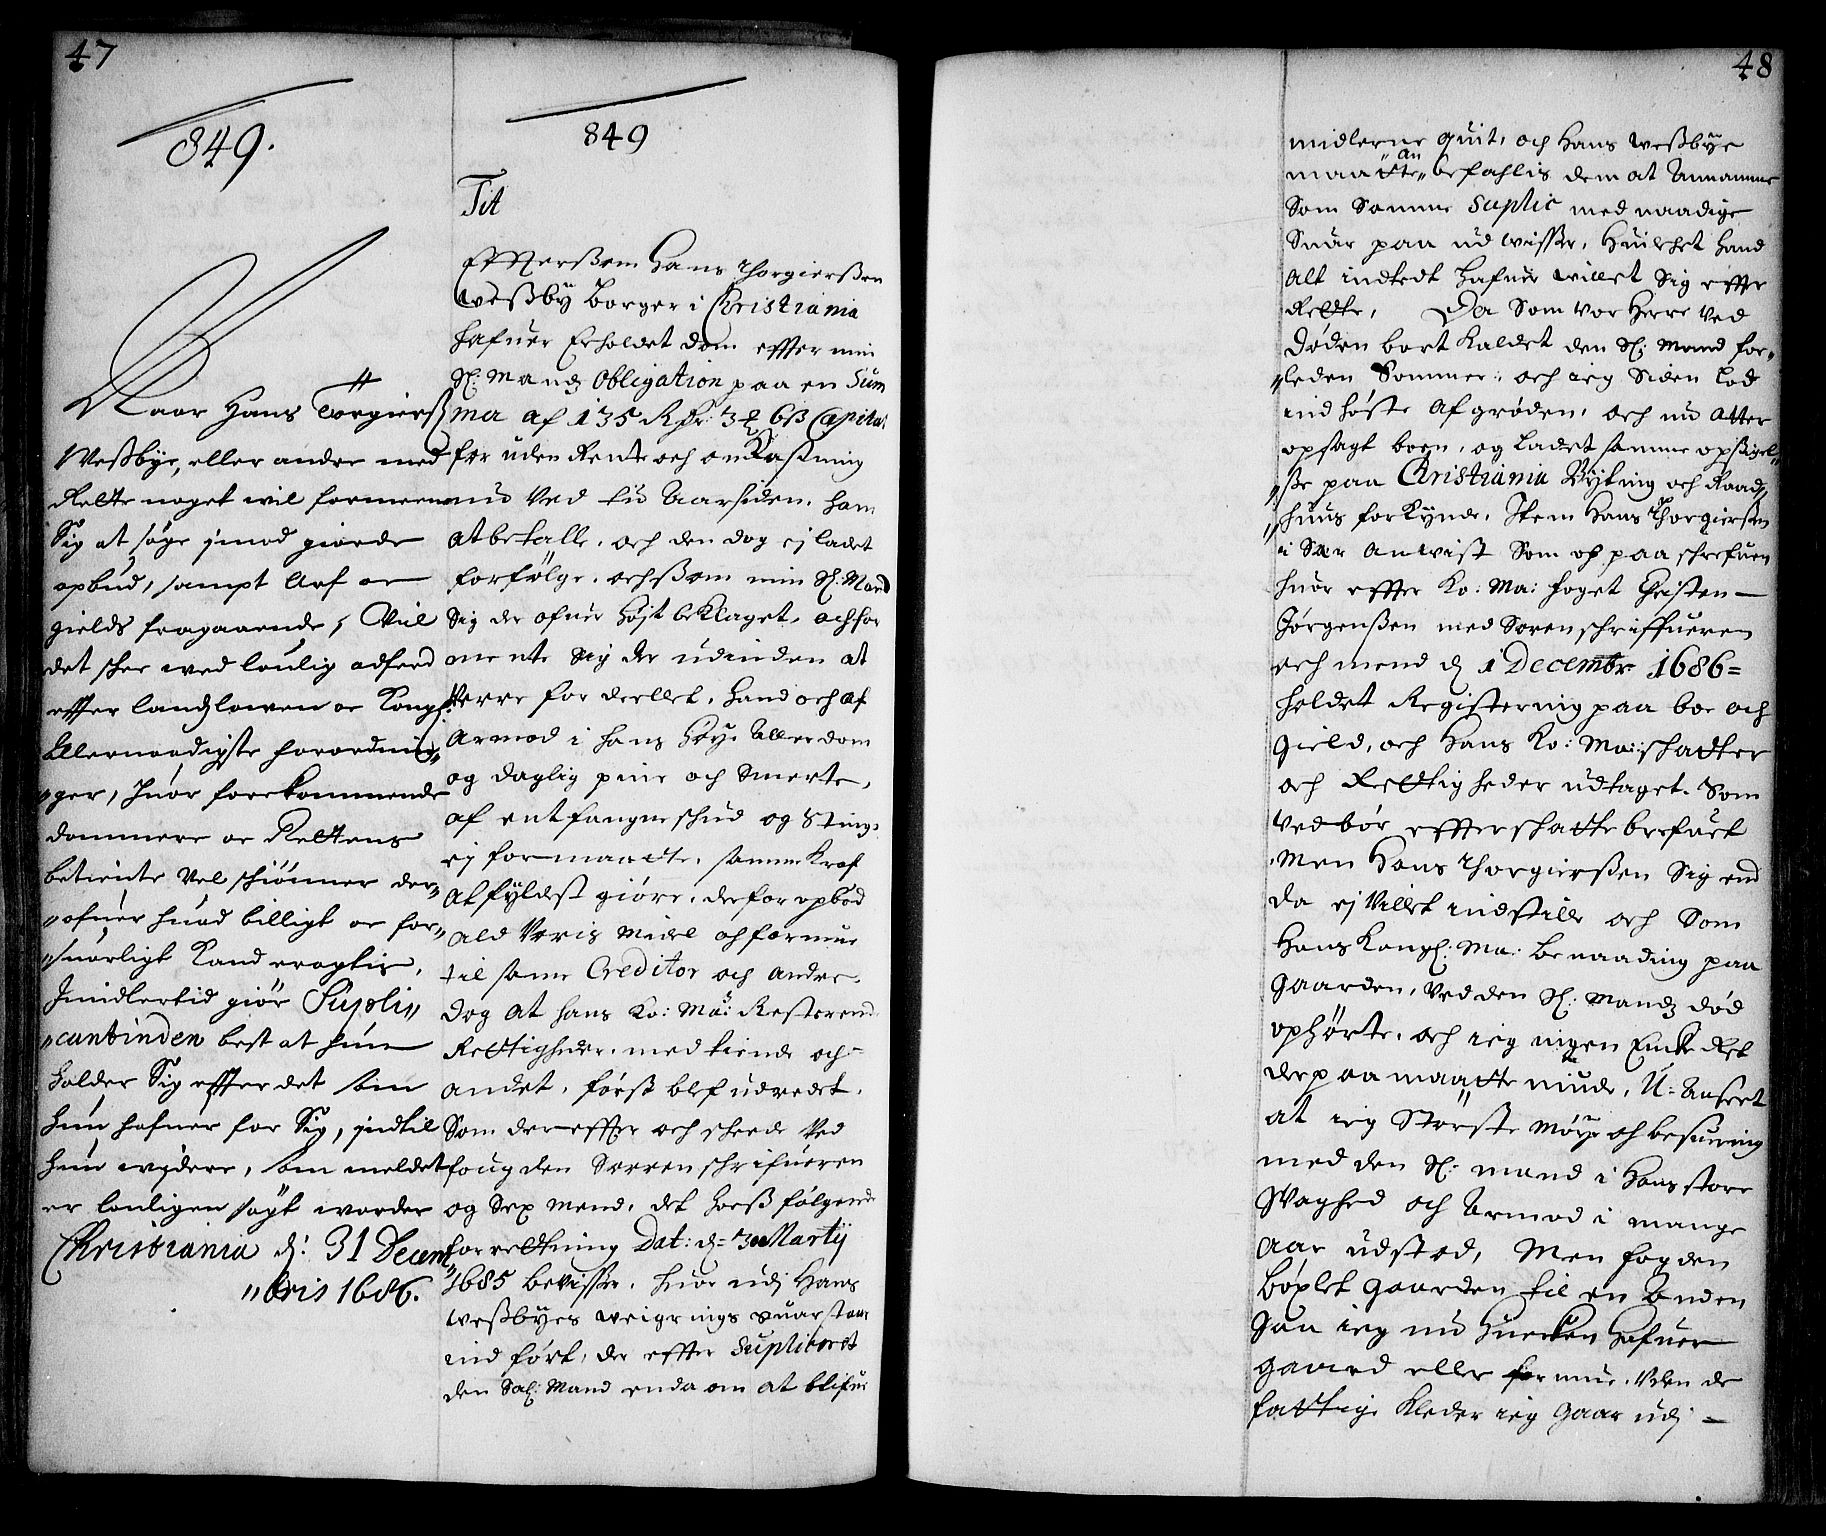 47
849.
Naar Hans Torgierß
Weßbye, eller andre med
Rette noget wil formeene
Sig at søge jmod giorde
opbud, sampt Arf oc
gields fragaaende, Vil
det skee med loulig adferd
effter landzlowen oc Kongl:
Allernaadigste forordnin„
„ger, huor forekommende
dommere oc Rettens
betiente vel schiønner der„
„ofuer huad billigt oc for„
„suarligt kand eragtis,
Imidlertid giør Supli„
„cantinden best at hun
holder Sig effter det som
hun hafuer for Sig, jndtil
hun widere, som meldet
er louligen søgt worder
Christiania d: 31 Decem„
„bris 1686.
849
Tit
Effterßom Hans Thorgierßen
Weßby borger i Christiania
hafuer Erholdet dom effter min
Sl: Mandz Obligation paa en Sum
mer af 135 Rdr: 3 ꝶ 6 ß Capital
for uden Rente och omkastning
nu ved tu Aarsiden. ham
at betalle, och den dog ej ladet
forfølge. och ßom min Sl: Mand
Sig der ofuer høyt beklaget, och for
mente Sig der udinden at
verre fordeellet, hand och af
Armod i hans høye Allerdom
og daglig pine och Smerte,
af entfangne schud og Sting
ej formaatte, samme Kraf
at fyldest giøre, derfor opbød
ald voris midel och formue
til samme Creditor och andre,
dog at hans Ko: Ma: Resterende
Rettigheder, med tiende och
andet, først blef udredet.
Som dereffter och skeede ved
fougden Sorrenschrifueren
og Sex mend, det hoeß følgende
forretning Dat: d= 30 Marty
1685 bevisser, huor udj Hans
Weßbyes weigrings suar staar
ind ført, der effter Supliceret
den Sal: Mand enda om at blifue
48
midlerne quit, och Hans Weßbye
maatte „an„befahlis dem at Annamme
Som Samme Suplic med naadige
Suar paa ud wisser, huilchet hand
alt indtedt hafuer willet Sig effter
Rette, Da Som vor Herre ved
døden bort Kaldet den Sl: Mand for„
„leden Sommer, och ieg Siden lod
ind høste afgrøden, och nu atter
opsagt boen, og ladet samme opsigel„
„ße paa Christiania Byting och Raad„
„huus forkynde, Item Hans Thorgierßen
i Sær anvist Som och paa schrefuen
huor effter Ko: Ma: foget Christen
Jørgenßen med Sorenschriffueren
och mend d 1 Decembr 1686=
holdet Registering paa boe och
gield, och Hans Ko: Ma: schatter
och Rettigheder udtaget. Som
vedbør effter schattebrefuet
Men Hans Thorgierßen Sig end
da ej villet indstille och Som
Hans Kongl: Ma: benaading paa
gaarden, ved den Sl: Mandz død
ophørte, och ieg ingen Encke Ret
derpaa maatte niude, U-Anseet
at ieg Største Møye och besuering
med den Sl: mand i Hans store
Svaghed och Armod i mange
aar udstod, Men fogden
bøxlet gaarden til en Anden
Saa ieg nu huercken hafuer
gaard eller formue. Uden de
fattige kleder ieg gaar udj –